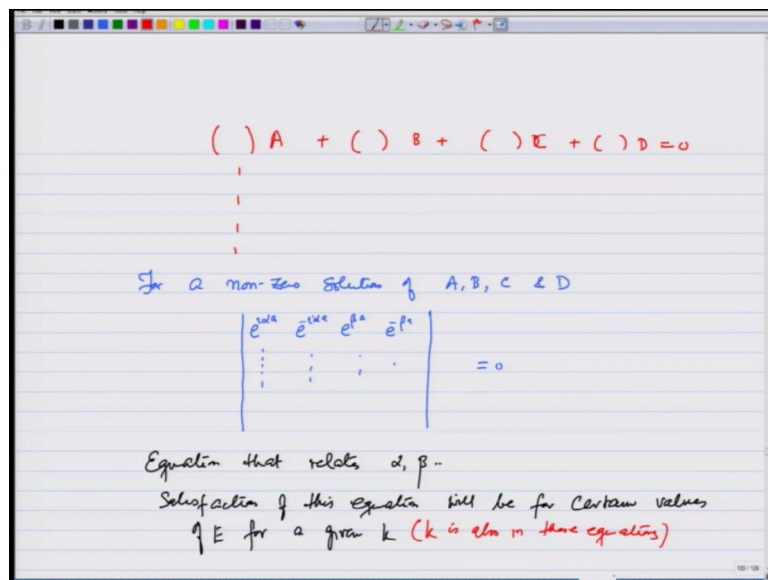 ( ) A + ( ) B + ( ) C + ( ) D = 0
For a non-zero solution of A, B, C & D
e^{iαa} e^{-iαa} e^{βa} e^{-βa}
= 0
Equation that relates α, β ..
Satisfaction of this equation will be for certain values
of E for a given k (k is also in those equations)
100 / 126